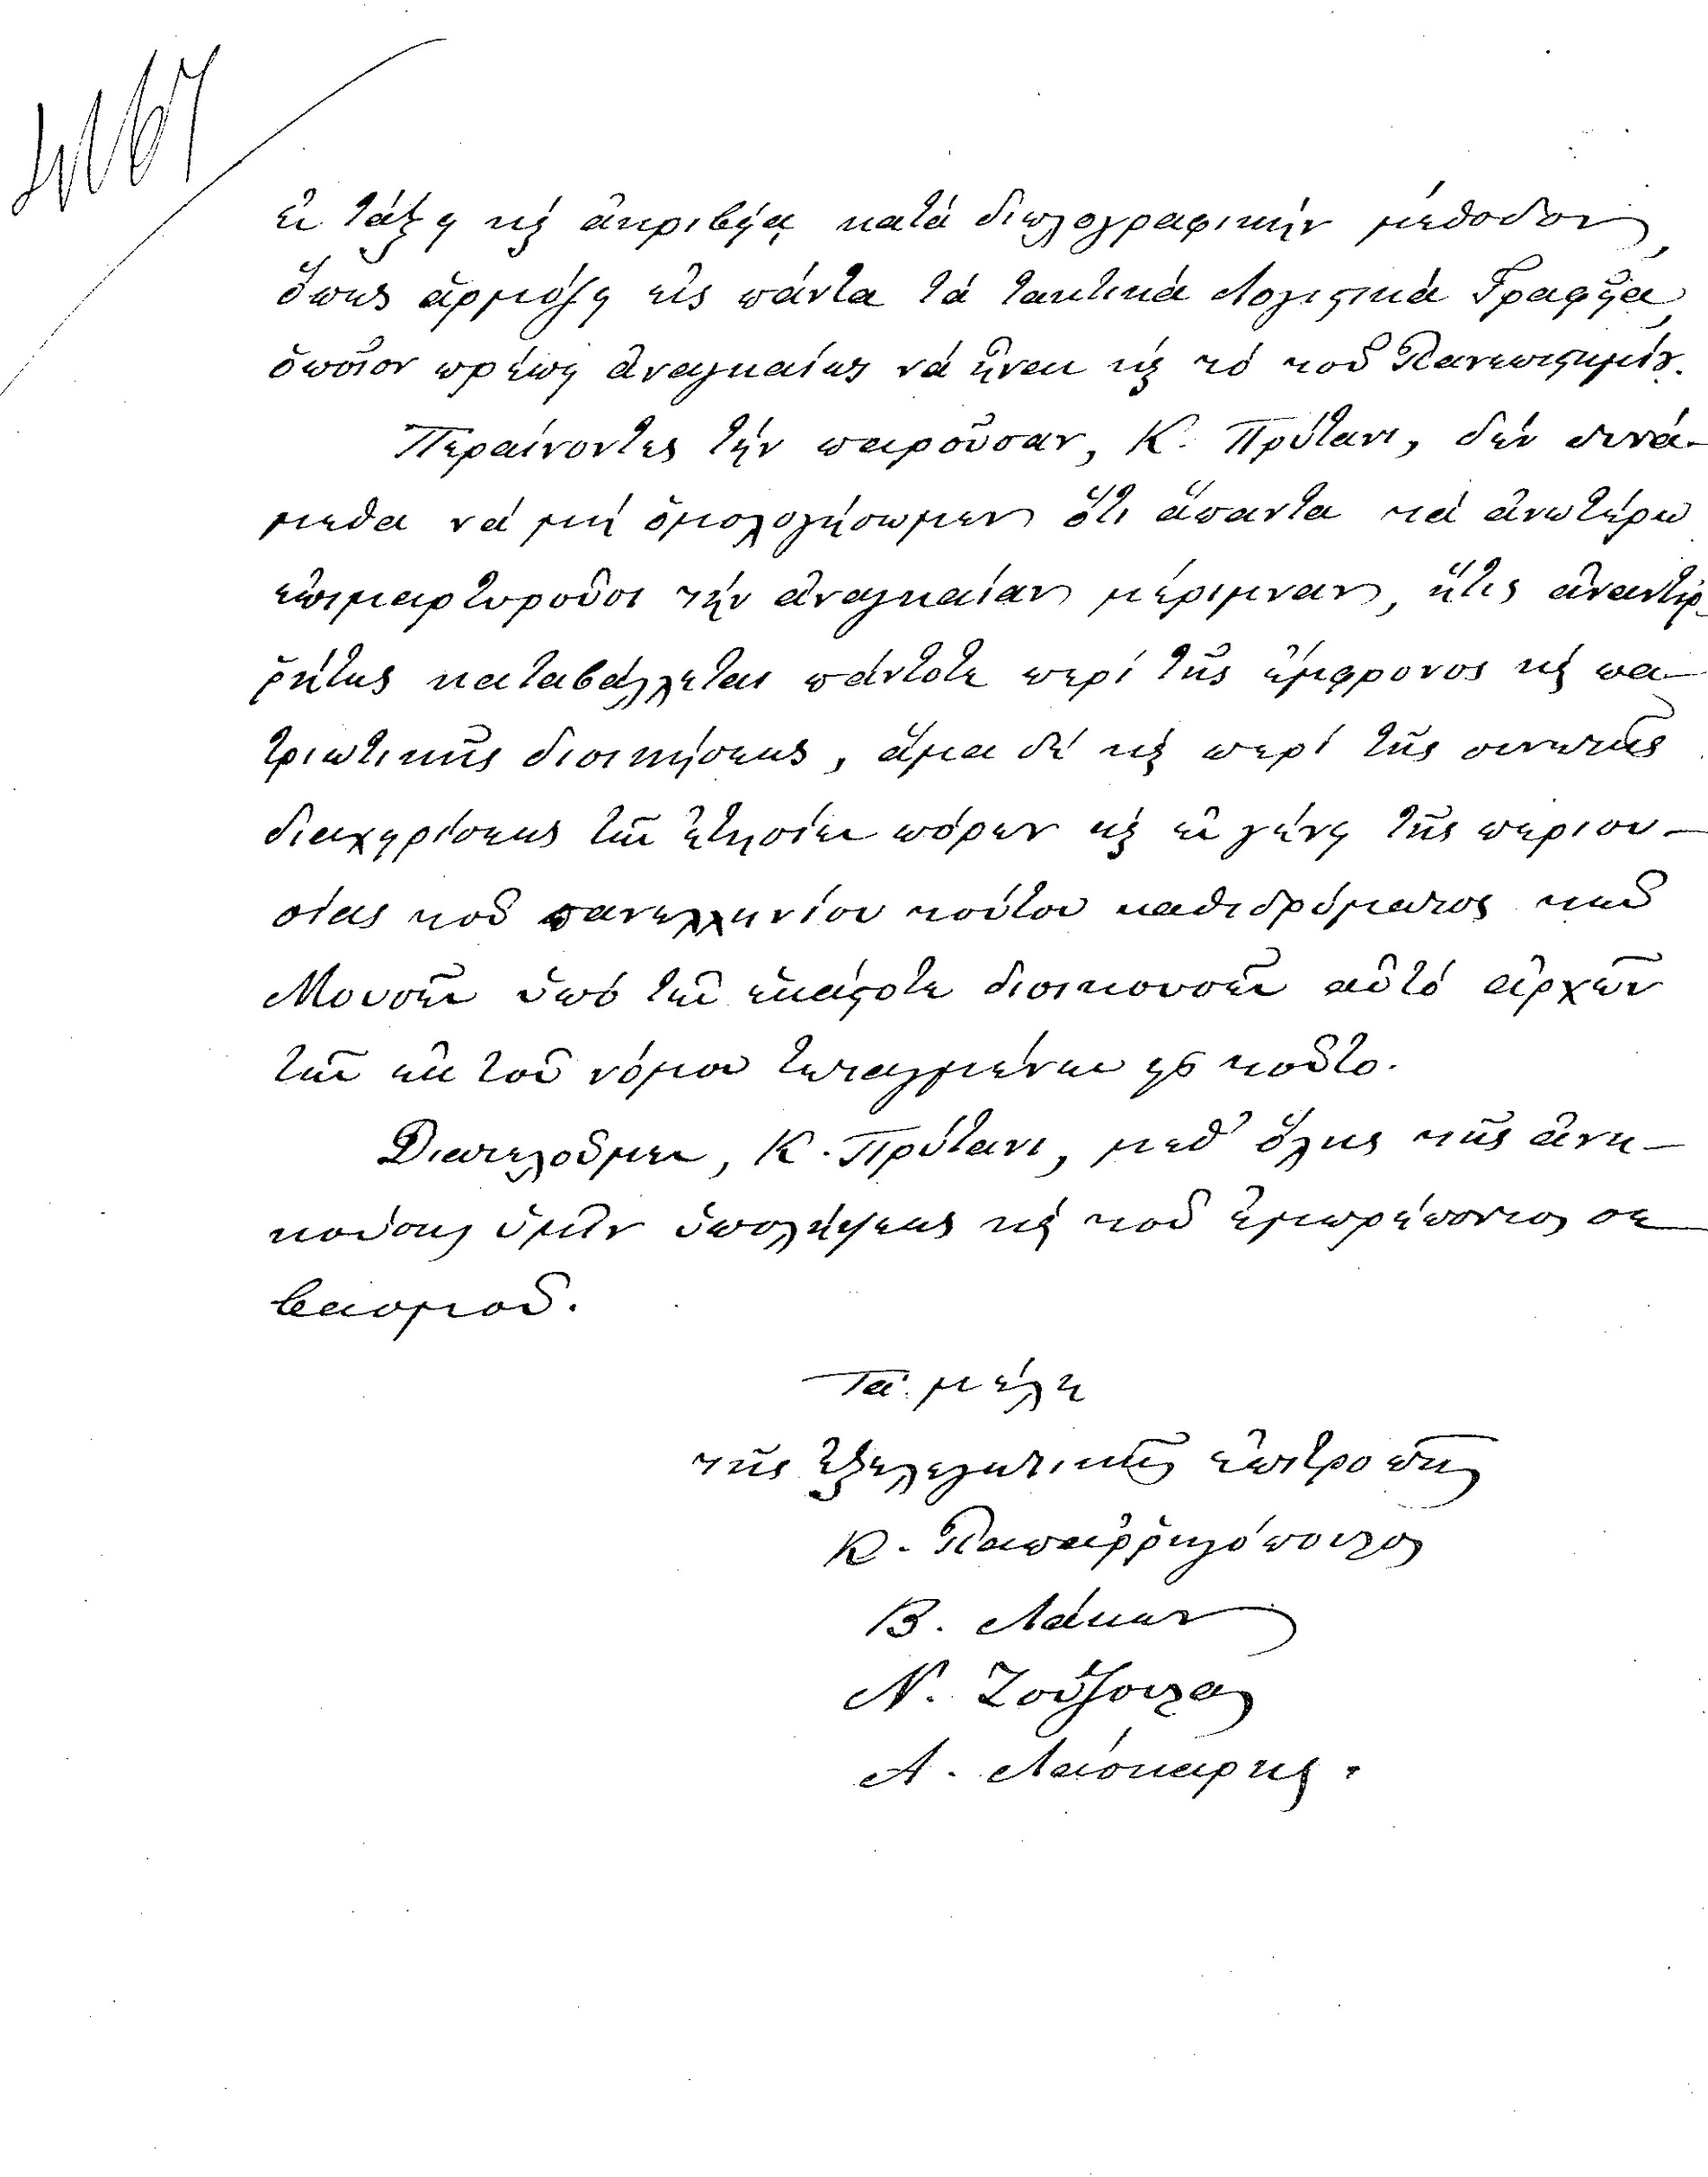 ἐν τάξει καὶ ἀκριβείᾳ κατά διπλογραφικήν μέθοδον,
ὅπως ἁρμόζει εἰς πάντα τά τακτικά Λογιστικά Γραφεῖα,
ὁποῖον πρέπει ἀναγκαίως νά ᾖναι καὶ τό τοῦ Πανεπιστημίου.
Περαίνοντες τήν παροῦσαν, Κ. Πρύτανι, δέν δυνά-
μεθα νά μή ὁμολογήσωμεν ὅτι ἅπαντα τά ἀνωτέρω
ἐπιμαρτυροῦσι τήν ἀναγκαίαν μέριμναν, ἥτις ἀναντιρ-
ῥήτως καταβάλλεται πάντοτε περί τῆς ἔμφρονος καὶ πα-
τριωτικῆς διοικήσεως, ἅμα δέ καὶ περί τῆς συνετῆς
διαχειρίσεως τῶν ἐτησίων πόρων καὶ ἐν γένει τῆς περιου-
σίας τοῦ πανελληνίου τούτου καθιδρύματος τῶν
Μουσῶν ὑπό τῶν ἑκάστοτε διοικουσῶν αὐτό ἀρχῶν
τῶν ἐκ τοῦ νόμου τεταγμένων εἰς τοῦτο.
Διατελοῦμεν, Κ. Πρύτανι, μεθ' ὅλης τῆς ἀνη-
κούσης ὑμῖν ὑπολήψεως καὶ τοῦ ἐμπρέποντος σε
βασμοῦ.
Τά μέλη
τῆς ἐξελεγκτικῆς ἐπιτροπῆς
Κ. Παπαῤῥηγόπουλος
Β. Λάκων
Ν.
Α. Λάσκαρης.